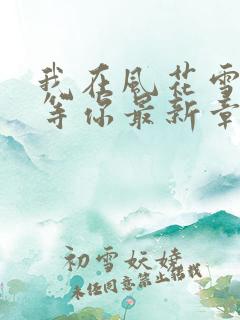 我在风花雪
等你最新章
初雪妖娆
未经同意禁止搭载